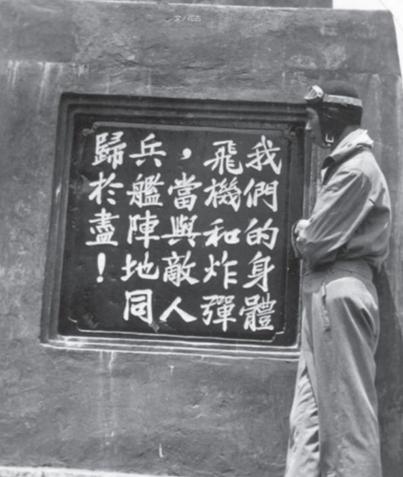 我們的身體
飛機和炸彈
，當與敵人
兵艦陣地同
歸於盡！